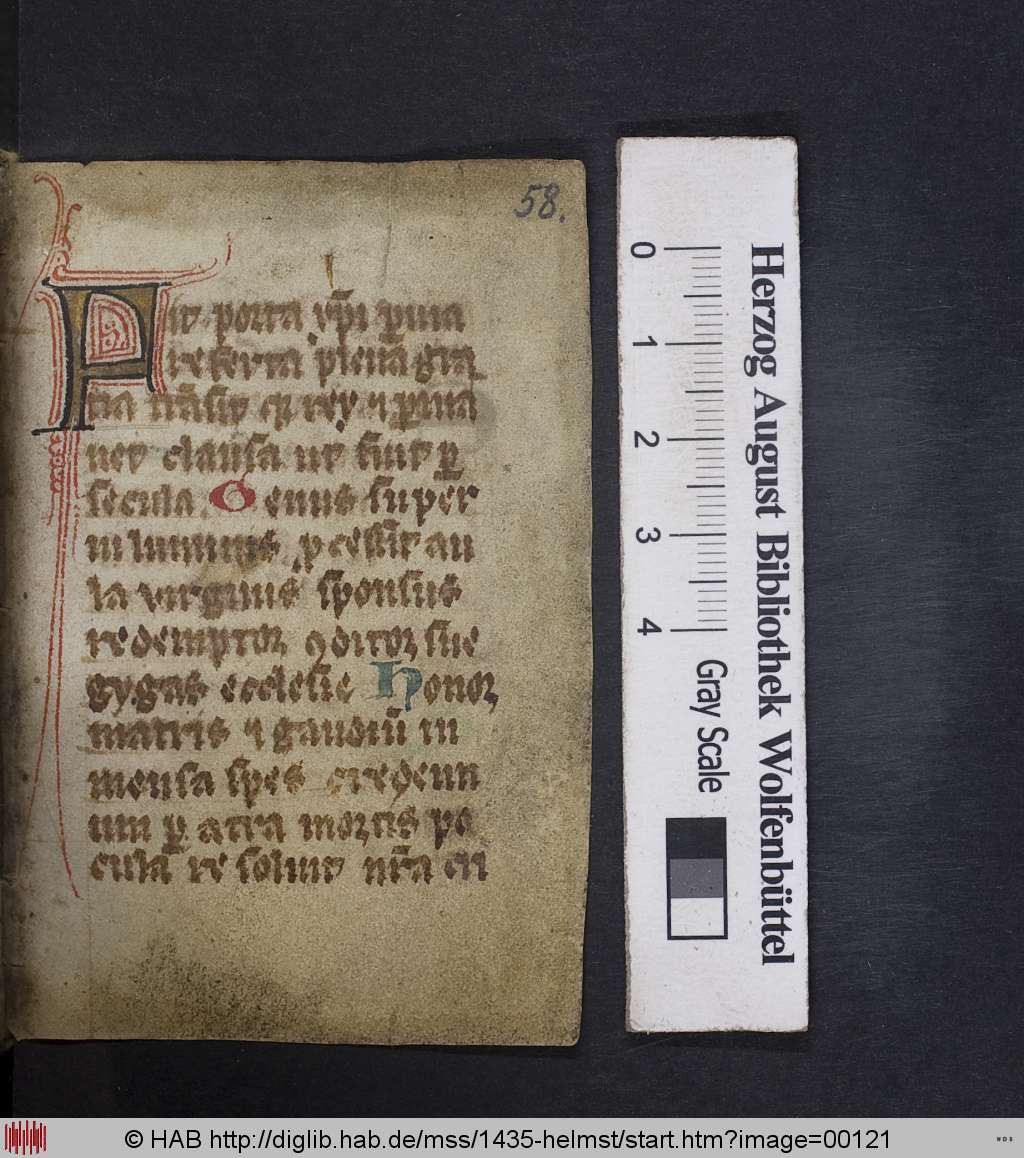 58.
Fit porta xp̄i p̱uia
referta plena gr̄a
cia trāsit q̄ rex ⁊ p̱ma
net clausa ut fuit p̱
secula Genus super
ni luminis p̱cessit au
la virginis sponsus
redemptor ꝯditor sue
gygas ecclesie Honor
matris ⁊ gaudiū in
mensa spes credenti
um p̱ atra mortis po
cula re soluit nr̄a cri
Herzog August Bibliothek Wolfenbüttel
0 1 2 3 4
Gray Scale
© HAB http://diglib.hab.de/mss/1435-helmst/start.htm?image=00121